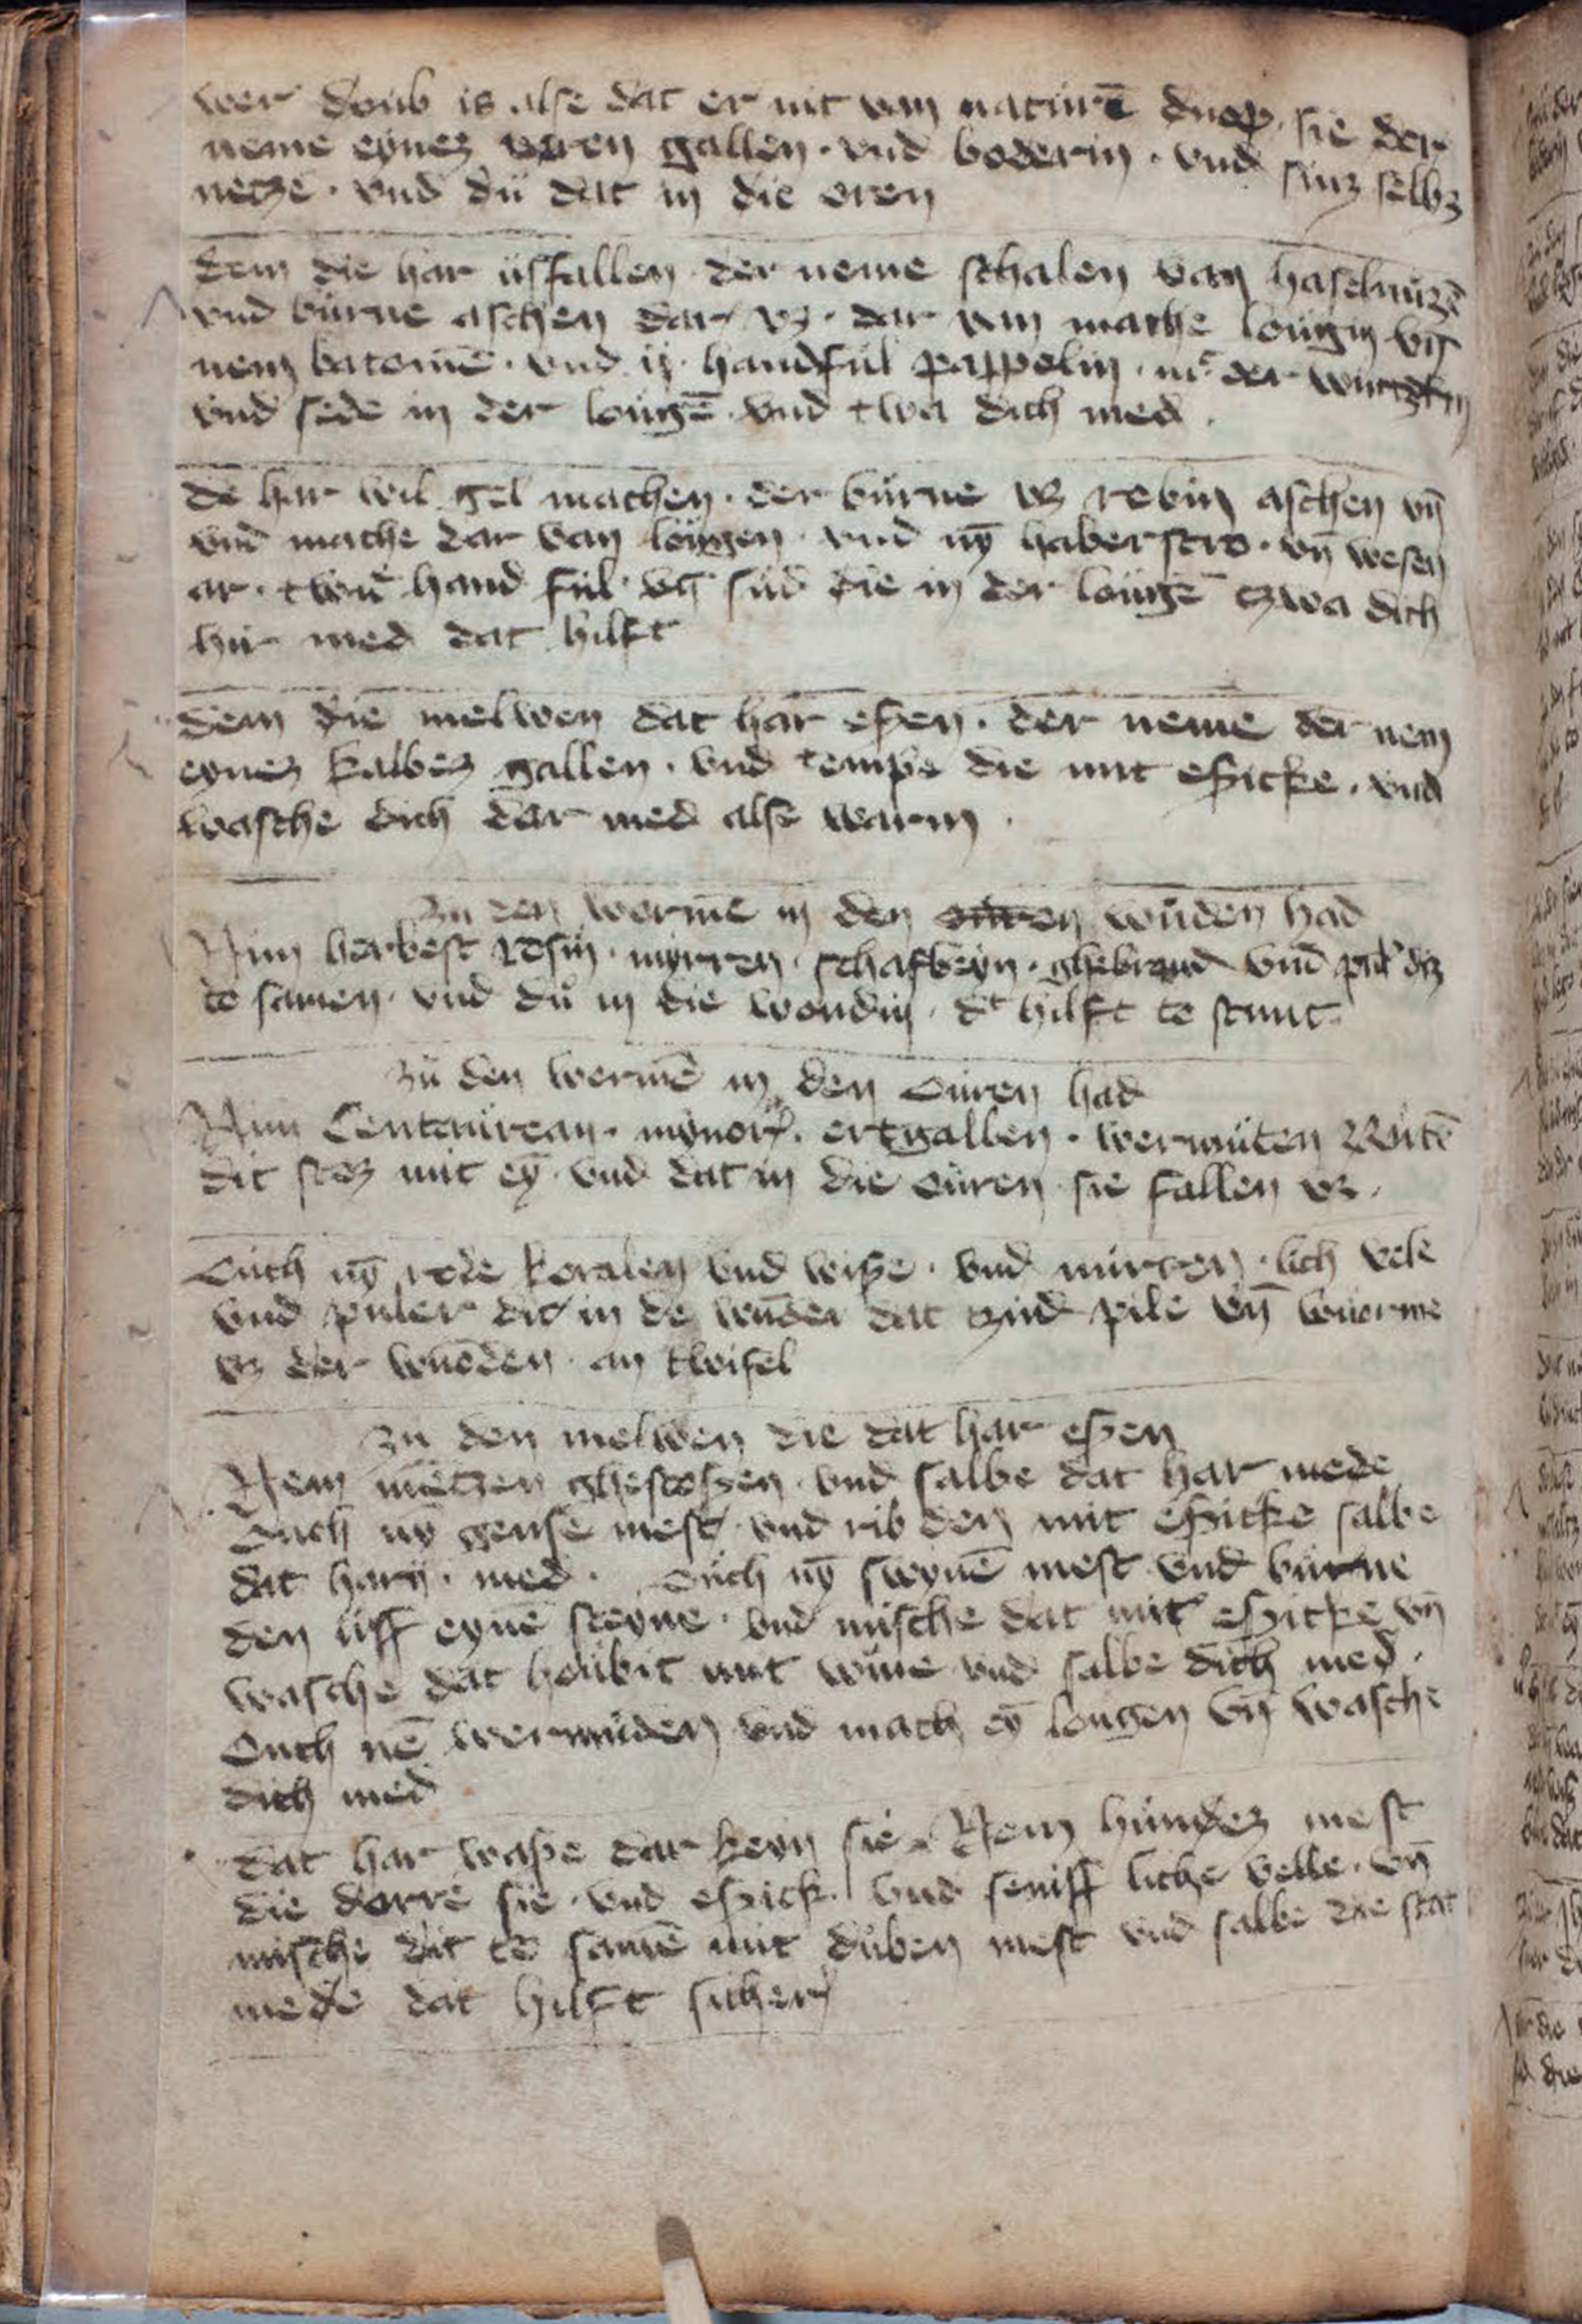 wer doub is alse dat er nit van naturē sie der
neme eynez gallen · vnd boderin · vnd sinz selbz
netze · vnd dů dat in die oren
dem die har usfallen der neme schalen van haselnuzē
vnd burne aschen dar vz · dar van mache lougin vn̄
nem · vnd ij · handful pappelin · der
vnd sede in der lougē vnd twa dich med ·
de har wil gel machen · der burne vz rebin aschen vn̄
vnd mache dar van lougen · vnd nȳ haberstro · vn̄ wesen
ar · hand ful · vn̄ sud die in der lougē tzwa dich
hir med dat hilft
dem die melwen dat har eßen · der neme der nem
eynez kalbez gallen · vnd tempe die mit eßicke · vnd
wasche dich dar med alse warm ·
zu den wormē in den ouren wůden had
Nim herbest rosin · mirren · schafbeyn · ghebrand vnd diz
te samen · vnd dů in die wondin · dt hilft te stunt
zů den wermē in den ouren had
Nim Centaurean · mynorz · ertgallen · wermuten Rutē
dit stoz mit eȳ · vnd dat in die ouren sie fallen vz ·
Ouch nȳ rode koralen vnd wiße · vnd mirren · lich vele
vnd puluer dit in de dat zud pile vn̄ wuorme
vz der wuͦden · an twifel
zu den melwen die dat har eßen
Nem ghestoßen · vnd salbe dat har mede
Ouch nȳ gense mest vnd rib den mit eßicke salbe
dat med · Ouch nȳ swynē mest vnd burne
den uff eynē steyne · vnd mische dat mit eßicke vn̄
wasche dat houbit mit wine vnd salbe dich med ·
Ouch nē wermuden vnd mach eȳ lougen vn̄ wasche
dich med
dat har waße dar keyn sie Nem hundez mest
die dorre sie · vnd eßick · vnd seniff liche velle · vn̄
mische dit te samē mit duben mest vnd salbe die stat
mede dat hilft sicher